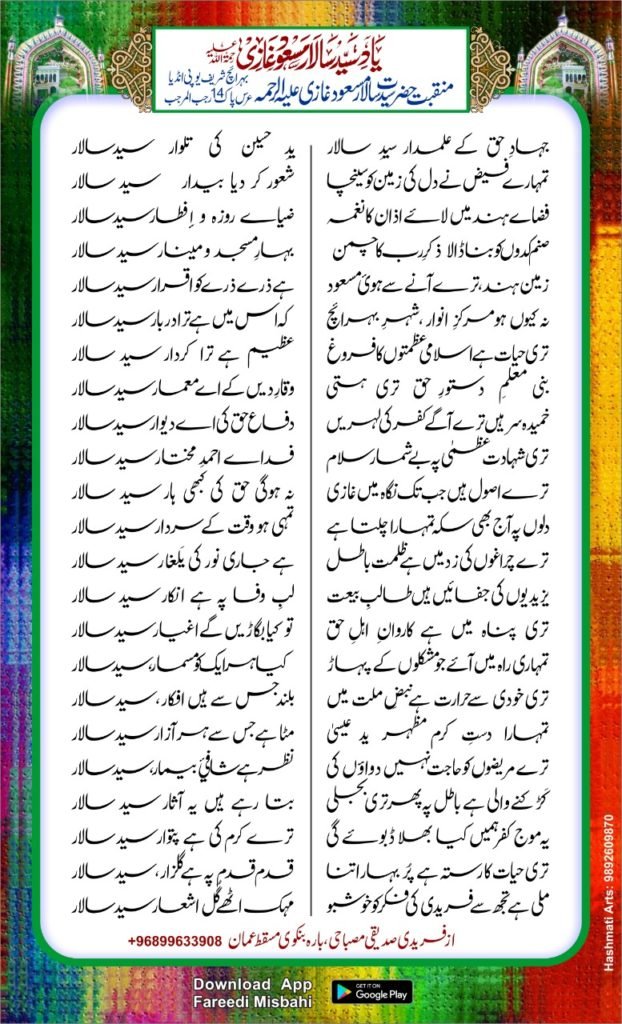 یادِ سید سالار مسعود غازی رحمۃ اللہ علیہ
بہرائچ شریف یوپی انڈیا
منقبت حضرت سید سالار مسعود غازی علیہ الرحمہ عرس پاک 14 رجب المرجب
جہادِ حق کے علمدار سیدِ سالار یدِ حسین کی تلوار سید سالار
تمہارے فیض نے دل کی زمین کو سینچا شعور کر دیا بیدار سید سالار
فضاے ہند میں لائے اذان کا نغمہ ضیاے روزہ و اِفطار سید سالار
صنم کدوں کو بنا ڈالا ذکرِ رب کا چمن بہارِ مسجد و مینار سید سالار
زمین ہند، ترے آنے سے ہوئ مسعود ہے ذرے ذرے کو اقرار سید سالار
نہ کیوں ہو مرکزِ انوار، شہرِ بہرائچ کہ اس میں ہے ترا دربار سید سالار
تری حیات ہے اسلامی عظمتوں کا فروغ عظیم ہے ترا کردار سید سالار
بنی معلمِ دستورِ حق تری ہستی وقارِ دیں کے اے معمار سید سالار
خمیدہ سر ہیں ترے آگے کفر کی لہریں دفاعِ حق کی اے دیوار سید سالار
تری شہادت عظمٰی پہ بے شمار سلام فداے احمدِ مختار سید سالار
ترے اصول ہیں جب تک نگاہ میں غازی نہ ہوگی حق کی کبھی ہار سید سالار
دلوں پہ آج بھی سکہ تمہارا چلتا ہے تمہی ہو وقت کے سردار سید سالار
ترے چراغوں کی زد میں ہے ظلمت باطل ہے جاری نور کی یلغار سید سالار
یزیدیوں کی جفائیں ہیں طالبِ بیعت لبِ وفا پہ ہے انکار سید سالار
تری پناہ میں ہے کاروانِ اہلِ حق تو کیا بگاڑیں گے اغیار سید سالار
تمہاری راہ میں آئے جو مشکلوں کے پہاڑ کیا ہر ایک کو مسمار، سید سالار
تری خودی سے حرارت ہے نبض ملت میں بلند جس سے ہیں افکار، سید سالار
تمہارا دستِ کرم مظہرِ یدِ عیسیٰ مٹا ہے جس سے ہر آزار سید سالار
ترے مریضوں کو حاجت نہیں دواؤں کی نظر ہے شافیٔ بیمار، سید سالار
کڑکنے والی ہے باطل پہ پھر تری بجلی بتا رہے ہیں یہ آثار سید سالار
یہ موج کفر ہمیں کیا بھلا ڈبوئے گی ترے کرم کی ہے پتوار سید سالار
تری حیات کا رستہ ہے پُر بہار اتنا قدم قدم پہ ہے گلزار، سید سالار
ملی ہے تجھ سے فریدی کی فکر کو خوشبو مہک اٹھے گلِ اشعار سید سالار
از فریدی صدیقی مصباحی، بارہ بنکوی مسقط عمان +96899633908
Download App
Fareedi Misbahi
GET IT ON
Google Play
Hashmati Arts: 9892609870